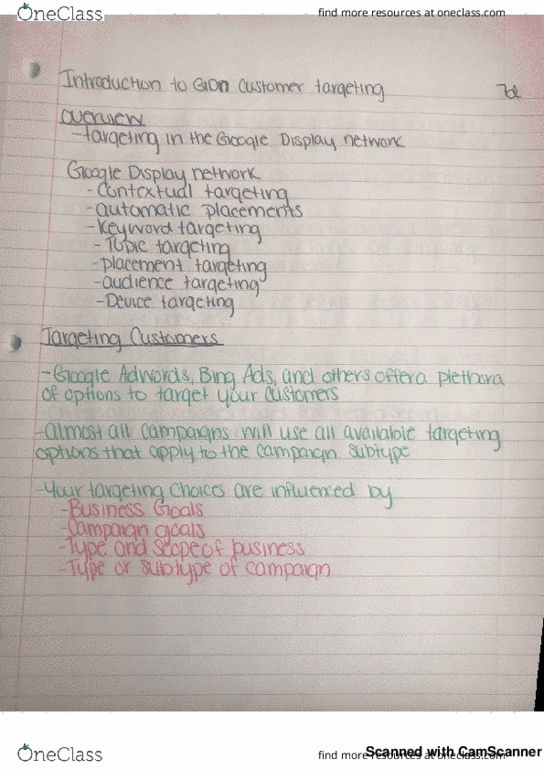 OneClass
find more resources at oneclass.com
Introduction to GDn Customer targeting
7d
Overview
-targeting in the Google Display network
Google Display network
-Contextual targeting
-automatic placements
-Keyword targeting
-Topic targeting
-placement targeting
-audience targeting
-Device targeting
Targeting Customers
-Google Adwords, Bing Ads, and others offer a plethora
of options to target your customers
-almost all campaigns will use all available targeting
options that apply to the campaign subtype
-Your targeting choices are influenced by
-Business Goals
-Campaign goals
-Type and scope of business
-Type or subtype of campaign
OneClass
find more resources at oneclass.com
Scanned with CamScanner